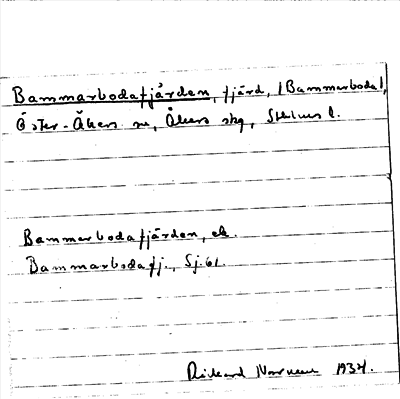 Bammarbodafjärden, fjärd, (Bammarboda),
Öster-Åkers sn, Åkers skg, Sthlms l.
Bammarbodafjärden, ek.
Bammarbodafj., Sj. 61.
Rickard 1934.